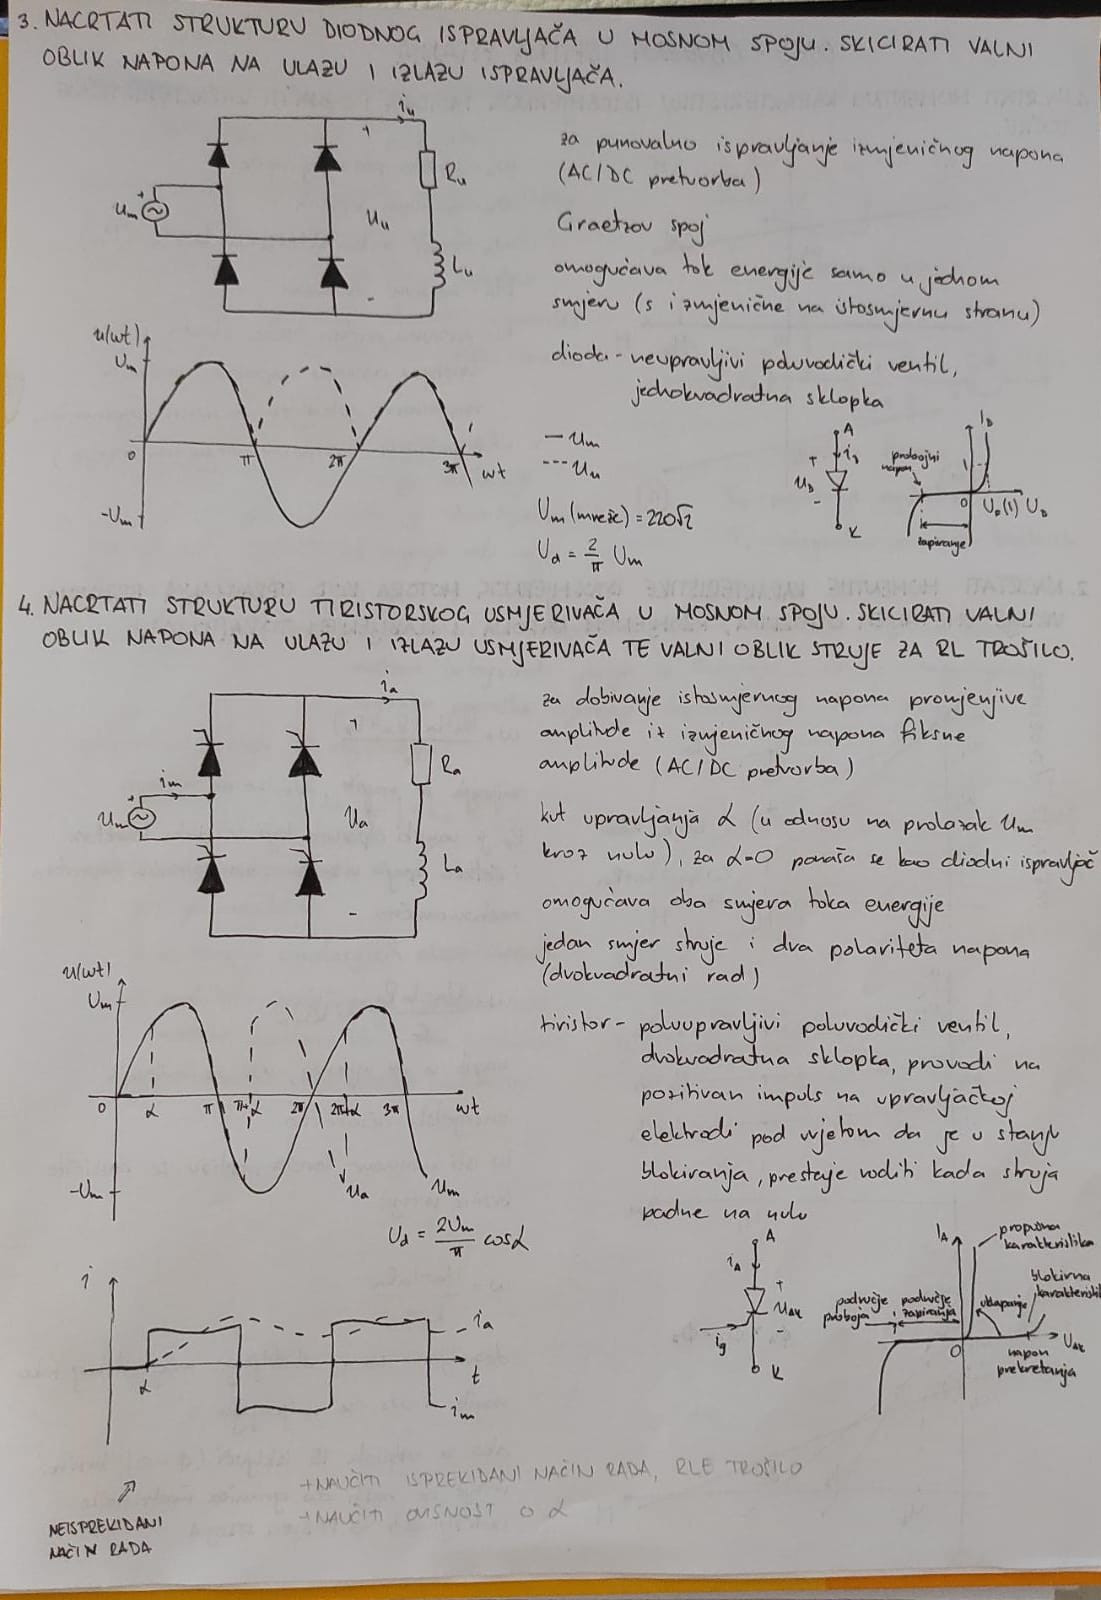 3. NACRTATI STRUKTURU DIODNOG ISPRAVLJAČA U MOSNOM SPOJU. SKICIRATI VALNI
OBLIK NAPONA NA ULAZU I IZLAZU ISPRAVLJAČA.
iu
+
Ru
um
+
uu
Lu
-
za punovalno ispravljanje izmjeničnog napona
(AC/DC pretvorba)
Graetzov spoj
omogućava tok energije samo u jednom
smjeru (s izmjenične na istosmjernu stranu)
dioda - neupravljivi poluvodički ventil,
jednokvadratna sklopka
u(wt)
Um
0
π
2π
3π
wt
-Um
— um
--- uu
Um (mreže) = 220√2
Ud = 2/π Um
A
+
iD
uD
-
K
probojni
napon
ID
0
UD
zapiranje
4. NACRTATI STRUKTURU TIRISTORSKOG USMJERIVAČA U MOSNOM SPOJU. SKICIRATI VALNI
OBLIK NAPONA NA ULAZU I IZLAZU USMJERIVAČA TE VALNI OBLIK STRUJE ZA RL TROŠILO.
ia
+
Ra
im
+
um
ua
La
-
za dobivanje istosmjernog napona promjenjive
amplitude iz izmjeničnog napona fiksne
amplitude (AC/DC pretvorba)
kut upravljanja α (u odnosu na prolazak um
kroz nulu), za α=0 ponaša se kao diodni ispravljač
omogućava oba smjera toka energije
jedan smjer struje i dva polariteta napona
(dvokvadratni rad)
tiristor - poluupravljivi poluvodički ventil,
dvokvadratna sklopka, provodi na
pozitivan impuls na upravljačkoj
elektrodi pod uvjetom da je u stanju
blokiranja, prestaje voditi kada struja
padne na nulu
u(wt)
Um
0
α
π
π+α
2π
2π+α
3π
wt
-Um
ua
um
Ud = 2Um/π cosα
i
ia
t
α
im
A
iA
+
uAK
-
ig
K
IA
propusna
karakteristika
blokirna
karakteristi
područje
proboja
područje
zapiranja
uklapanje
0
UAK
napon
prekretanja
+ NAUČITI ISPREKIDANI NAČIN RADA, RLE TROŠILO
+ NAUČITI OVISNOST O α
NEISPREKIDANI
NAČIN RADA